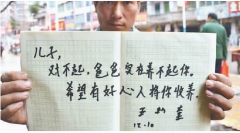 儿子，
对不起，爸爸没有养不起你。
希望有好心人将你收养。
12.10